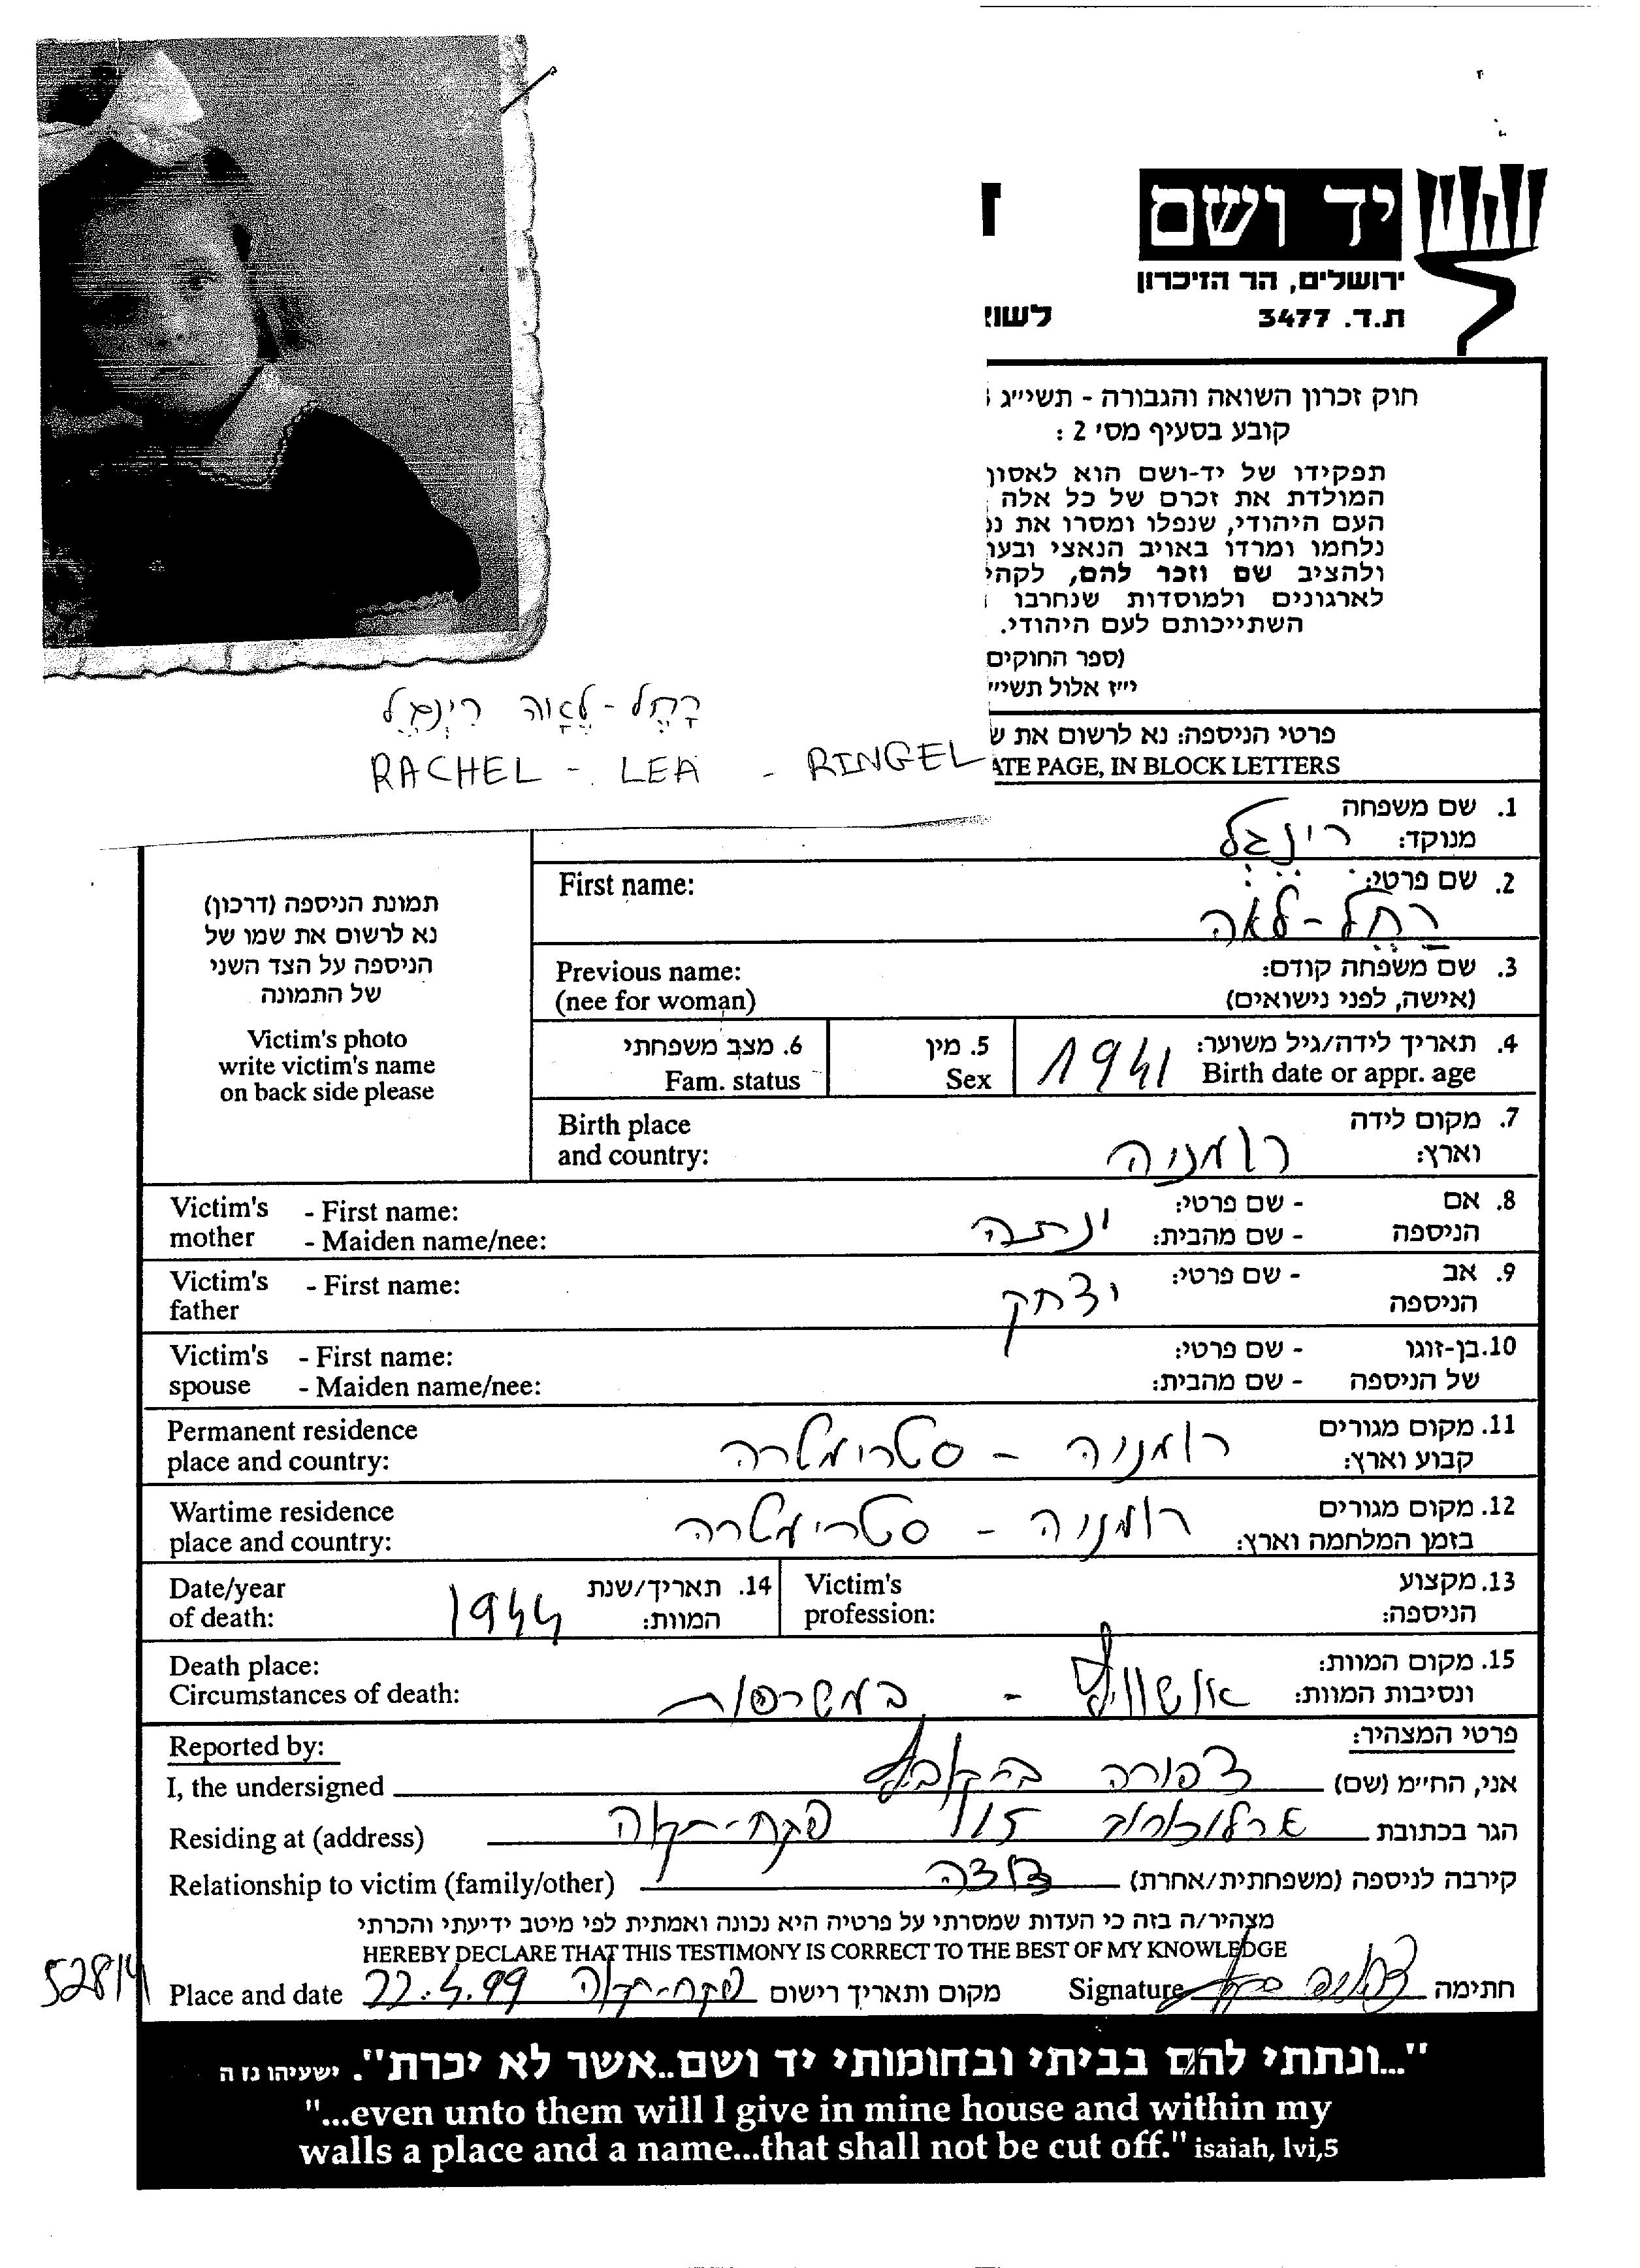 יד ושם
ירושלים, הר הזיכרון
ת.ד. 3477
לשוא
חוק זכרון השואה והגבורה - תשי״ג
קובע בסעיף מס׳ 2 :
תפקידו של יד-ושם הוא לאסוף
המולדת את זכרם של כל אלה
העם היהודי, שנפלו ומסרו את
נלחמו ומרדו באויב הנאצי
ולהציב שם וזכר להם,
לארגונים ולמוסדות שנחרבו
השתייכותם לעם היהודי.
(ספר החוקים
י״ז אלול
רָחֵל-לֵאָה רינגל
RACHEL - LEA - RINGEL
פרטי הניספה: נא לרשום את
ATE PAGE, IN BLOCK LETTERS
1. שם משפחה
מנוקד: רינגל
תמונת הניספה (דרכון)
נא לרשום את שמו של
הניספה על הצד השני
של התמונה
Victim's photo
write victim's name
on back side please
First name: 2. שם פרטי:
רחל-לאה
Previous name: 3. שם משפחה קודם:
(nee for woman) (אישה, לפני נישואים)
4. תאריך לידה/גיל משוער: 1941 5. מין 6. מצב משפחתי
Birth date or appr. age Sex Fam. status
Birth place 7. מקום לידה
and country: וארץ: רומניה
Victim's - First name: 8. אם - שם פרטי: ינתה
mother - Maiden name/nee: הניספה - שם מהבית:
Victim's - First name: 9. אב - שם פרטי: יצחק
father הניספה
Victim's - First name: 10. בן-זוגו - שם פרטי:
spouse - Maiden name/nee: של הניספה - שם מהבית:
Permanent residence 11. מקום מגורים
place and country: קבוע וארץ: רומניה - סטרימטרה
Wartime residence 12. מקום מגורים
place and country: בזמן המלחמה וארץ: רומניה - סטרימטרה
Date/year 14. תאריך/שנת Victim's 13. מקצוע
of death: המוות: 1944 profession: הניספה:
Death place: 15. מקום המוות:
Circumstances of death: ונסיבות המוות: אושוויץ - במשרפות
Reported by: פרטי המצהיר:
I, the undersigned אני, החיימ (שם) צפורה
Residing at (address) הגר בכתובת ארלוזורוב 115 פתח-תקוה
Relationship to victim (family/other) קירבה לניספה (משפחתית/אחרת) דודה
מצהיר/ה בזה כי העדות שמסרתי על פרטיה היא נכונה ואמתית לפי מיטב ידיעתי והכרתי
HEREBY DECLARE THAT THIS TESTIMONY IS CORRECT TO THE BEST OF MY KNOWLEDGE
52814
Place and date 22.4.99 פתח-תקוה מקום ותאריך רישום Signature חתימה
"...ונתתי להם בביתי ובחומותי יד ושם..אשר לא יכרת". ישעיהו נו ה
"...even unto them will I give in mine house and within my
walls a place and a name...that shall not be cut off." isaiah, lvi,5